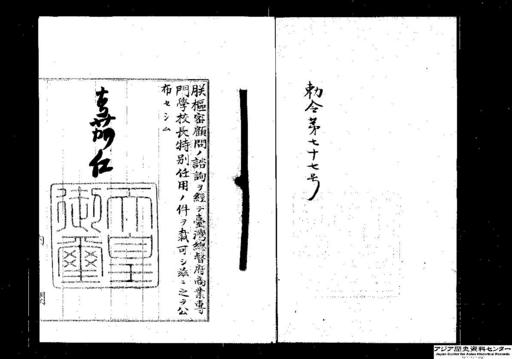 勅令第七十七号
朕樞密顧問ノ諮詢ヲ經テ臺灣總督府商業專
門學校長特別任用ノ件ヲ裁可シ茲ニ之ヲ公
布セシム
嘉仁
天皇
御璽
アジア歴史資料センター
Japan Center for Asian Historical Records